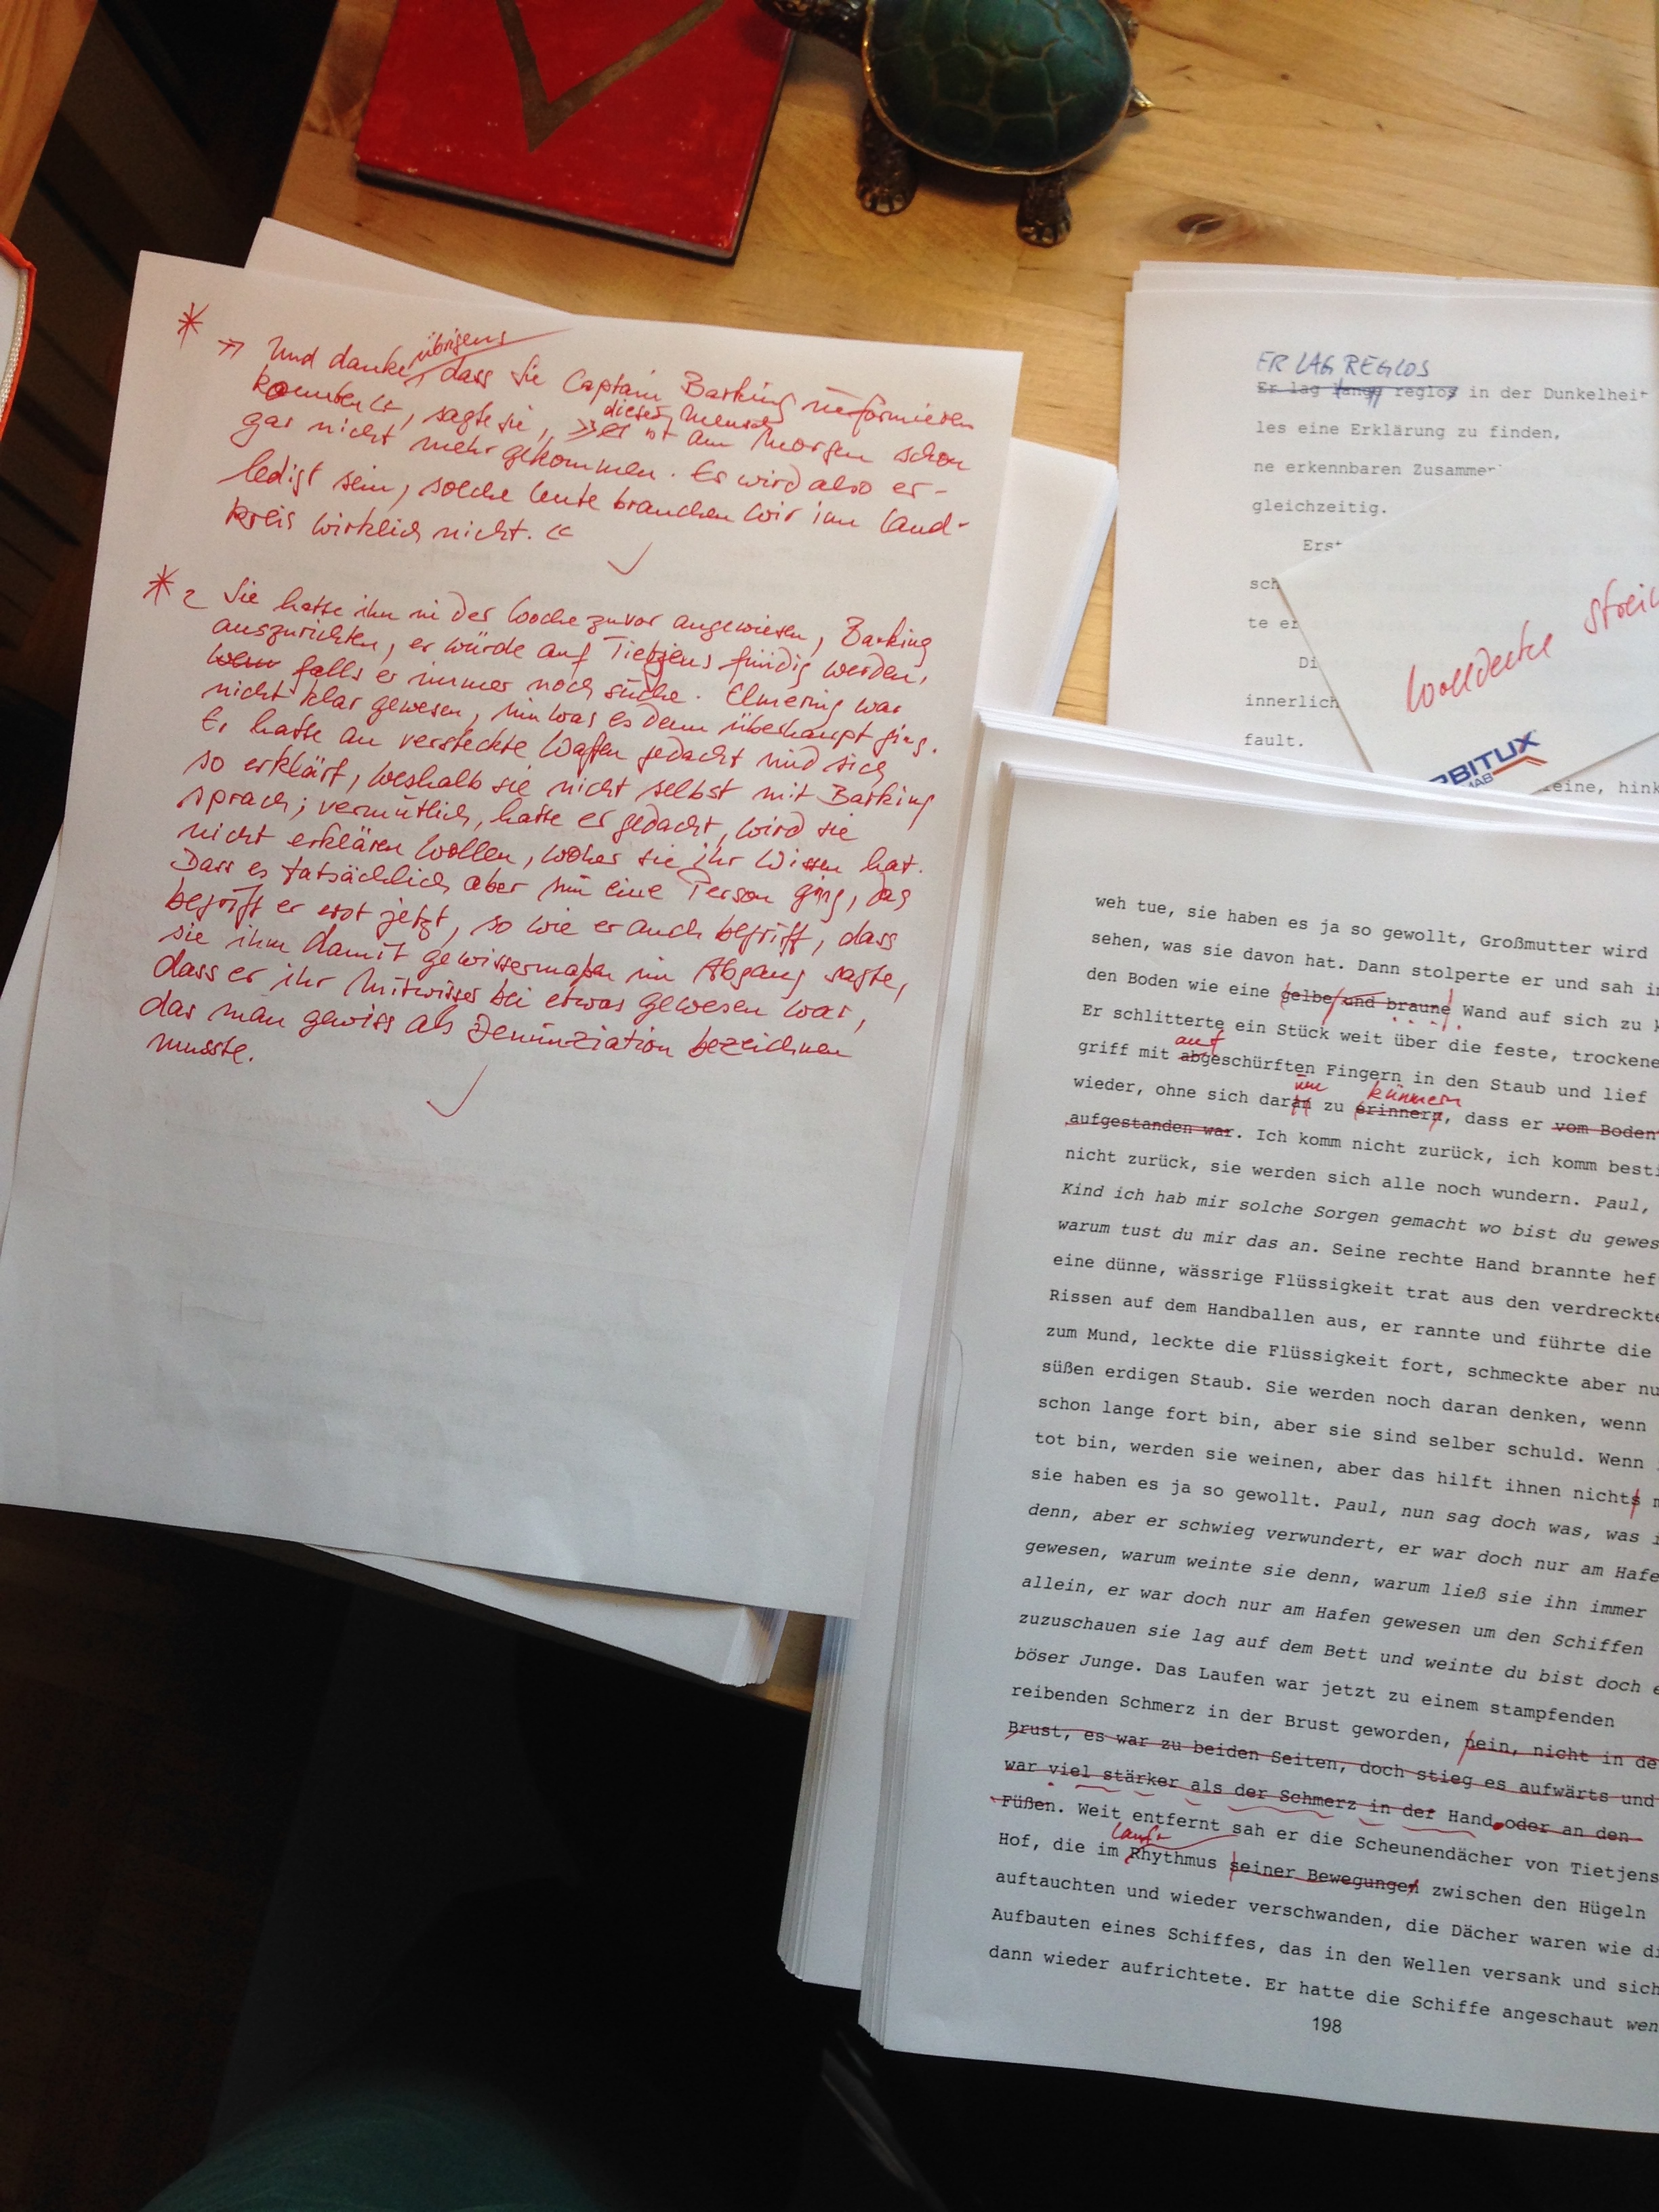 *
übrigens
» Und danke, dass Sie Captain Barking informieren
konnten«, sagte sie, »er ist am Morgen schon
dieser Mensch
gar nicht mehr gekommen. Es wird also er-
ledigt sein, solche Leute brauchen wir im Land-
kreis wirklich nicht.«
*2 Sie hatte ihn in der Woche zuvor angewiesen, Barking
auszurichten, er würde auf Tietjens fündig werden,
wenn falls er immer noch suche. Elmering war
nicht klar gewesen, um was es denn überhaupt ging.
Er hatte an versteckte Waffen gedacht und sich
so erklärt, weshalb sie nicht selbst mit Barking
sprach; vermutlich, hatte er gedacht, wird sie
nicht erklären wollen, woher sie ihr Wissen hat.
Dass es tatsächlich aber um eine Person ging, das
begriff er erst jetzt, so wie er auch begriff, dass
sie ihm damit gewissermaßen im Abgang sagte,
dass er ihr Mitwisser bei etwas gewesen war,
das man gewiss als Denunziation bezeichnen
musste.
ER LAG REGLOS
Er lag lang reglos in der Dunkelheit
les eine Erklärung zu finden,
ne erkennbaren Zusammen
gleichzeitig.
Erst
sch
te er
Di
innerlich
fault.
eine, hink
Wolldecke
RBITUX
MAB
weh tue, sie haben es ja so gewollt, Großmutter wird
sehen, was sie davon hat. Dann stolperte er und sah
den Boden wie eine gelbe und braune Wand auf sich zu
Er schlitterte ein Stück weit über die feste, trockene
auf
griff mit abgeschürften Fingern in den Staub und lief
um kümmern
wieder, ohne sich daran zu erinnern, dass er vom Boden
aufgestanden war. Ich komm nicht zurück, ich komm besti
nicht zurück, sie werden sich alle noch wundern. Paul,
Kind ich hab mir solche Sorgen gemacht wo bist du gewes
warum tust du mir das an. Seine rechte Hand brannte hef
eine dünne, wässrige Flüssigkeit trat aus den verdreckte
Rissen auf dem Handballen aus, er rannte und führte die
zum Mund, leckte die Flüssigkeit fort, schmeckte aber nu
süßen erdigen Staub. Sie werden noch daran denken, wenn
schon lange fort bin, aber sie sind selber schuld. Wenn
tot bin, werden sie weinen, aber das hilft ihnen nichts
sie haben es ja so gewollt. Paul, nun sag doch was, was
denn, aber er schwieg verwundert, er war doch nur am Hafe
gewesen, warum weinte sie denn, warum ließ sie ihn immer
allein, er war doch nur am Hafen gewesen um den Schiffen
zuzuschauen sie lag auf dem Bett und weinte du bist doch e
böser Junge. Das Laufen war jetzt zu einem stampfenden
reibenden Schmerz in der Brust geworden, nein, nicht in de
Brust, es war zu beiden Seiten, doch stieg es aufwärts und
war viel stärker als der Schmerz in der Hand oder an den
Füßen. Weit entfernt sah er die Scheunendächer von Tietjens
Lauf
Hof, die im Rhythmus seiner Bewegungen zwischen den Hügeln
auftauchten und wieder verschwanden, die Dächer waren wie di
Aufbauten eines Schiffes, das in den Wellen versank und sich
dann wieder aufrichtete. Er hatte die Schiffe angeschaut wen
198